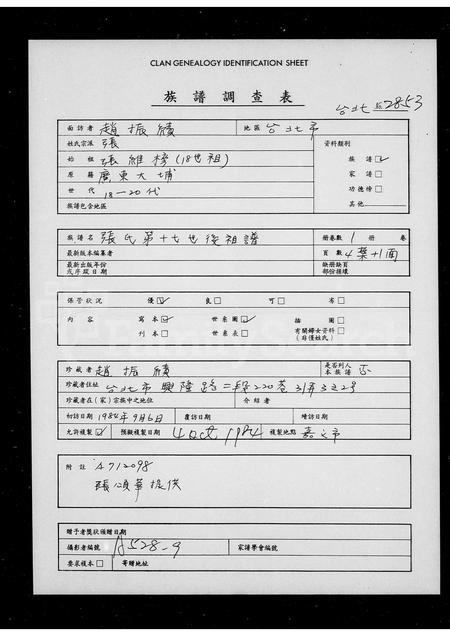 CLAN GENEALOGY IDENTIFICATION SHEET
族譜調查表
台北 2853
面訪者 趙振績 地區 台北市
姓氏宗派 張 資料類別
始祖 張維榜(18世祖) 族譜☑
原籍 廣東大埔 家譜□
世代 18—20代 功德榜□
族譜包含地區 其他
族譜名 張氏第十七世後祖譜 冊卷數 1 冊 卷
最新版本編纂者 頁數 4葉+1面
最新出版年份或序跋日期 缺冊缺頁部份損壞
保管狀況 優☑ 良□ 可□ 劣□
內容 寫本☑ 世系圖☑ 插圖□
刊本□ 世系表□ 有關婦女資料□(非僅姓氏)
珍藏者 趙振績 是否列入本族譜 否
珍藏者住址 台北市興隆路二段220巷31弄3之2号
珍藏者在(家)宗族中之地位 介紹者
初訪日期 1984年9月6日 覆訪日期 續訪日期
允許複製☑ 預擬複製日期 4 oct 1984 複製地點 嘉之市
附註 A712098
張頌華提供
贈予者獎狀頒贈日期
攝影者編號 A528-9 家譜學會編號
要求複本□ 寄贈地址
FamilySearch